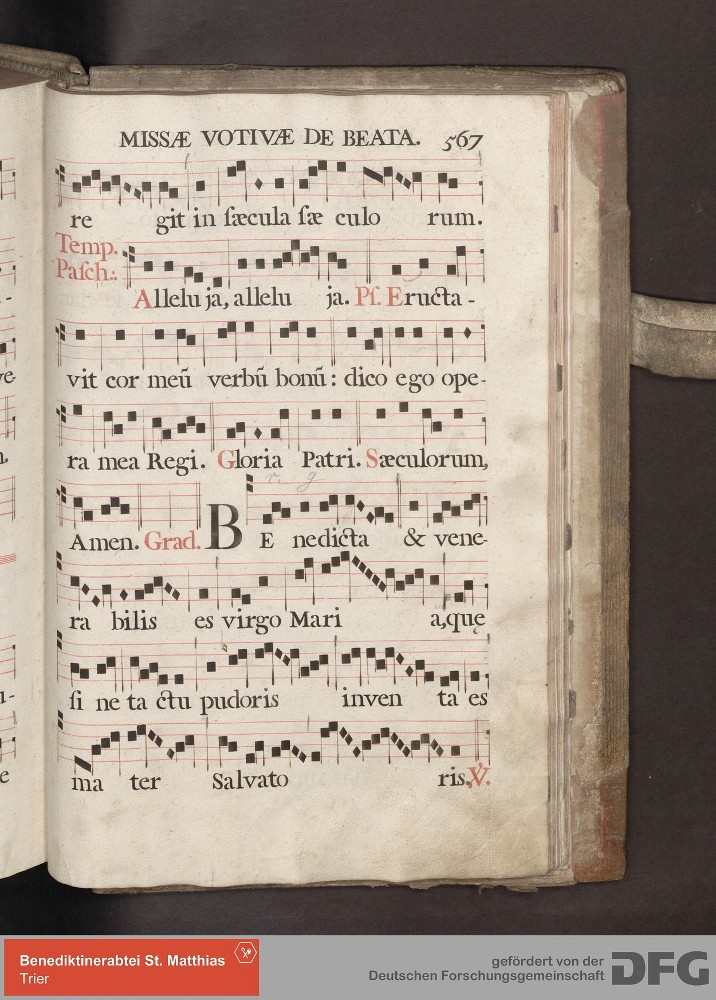 MISSÆ VOTIVÆ DE BEATA. 567
re git in ſæcula ſæ culo rum.
Temp.
Paſch.:
Allelu ja, allelu ja. Pſ. Eructa-
vit cor meū verbū bonū: dico ego ope-
ra mea Regi. Gloria Patri. Sæculorum,
Amen. Grad. BE nedicta & vene-
ra bilis es virgo Mari a,quę
ſi ne ta ctu pudoris inven ta es
ma ter Salvato ris. ℣.
Benediktinerabtei St. Matthias
Trier
gefördert von der
Deutschen Forschungsgemeinschaft
DFG